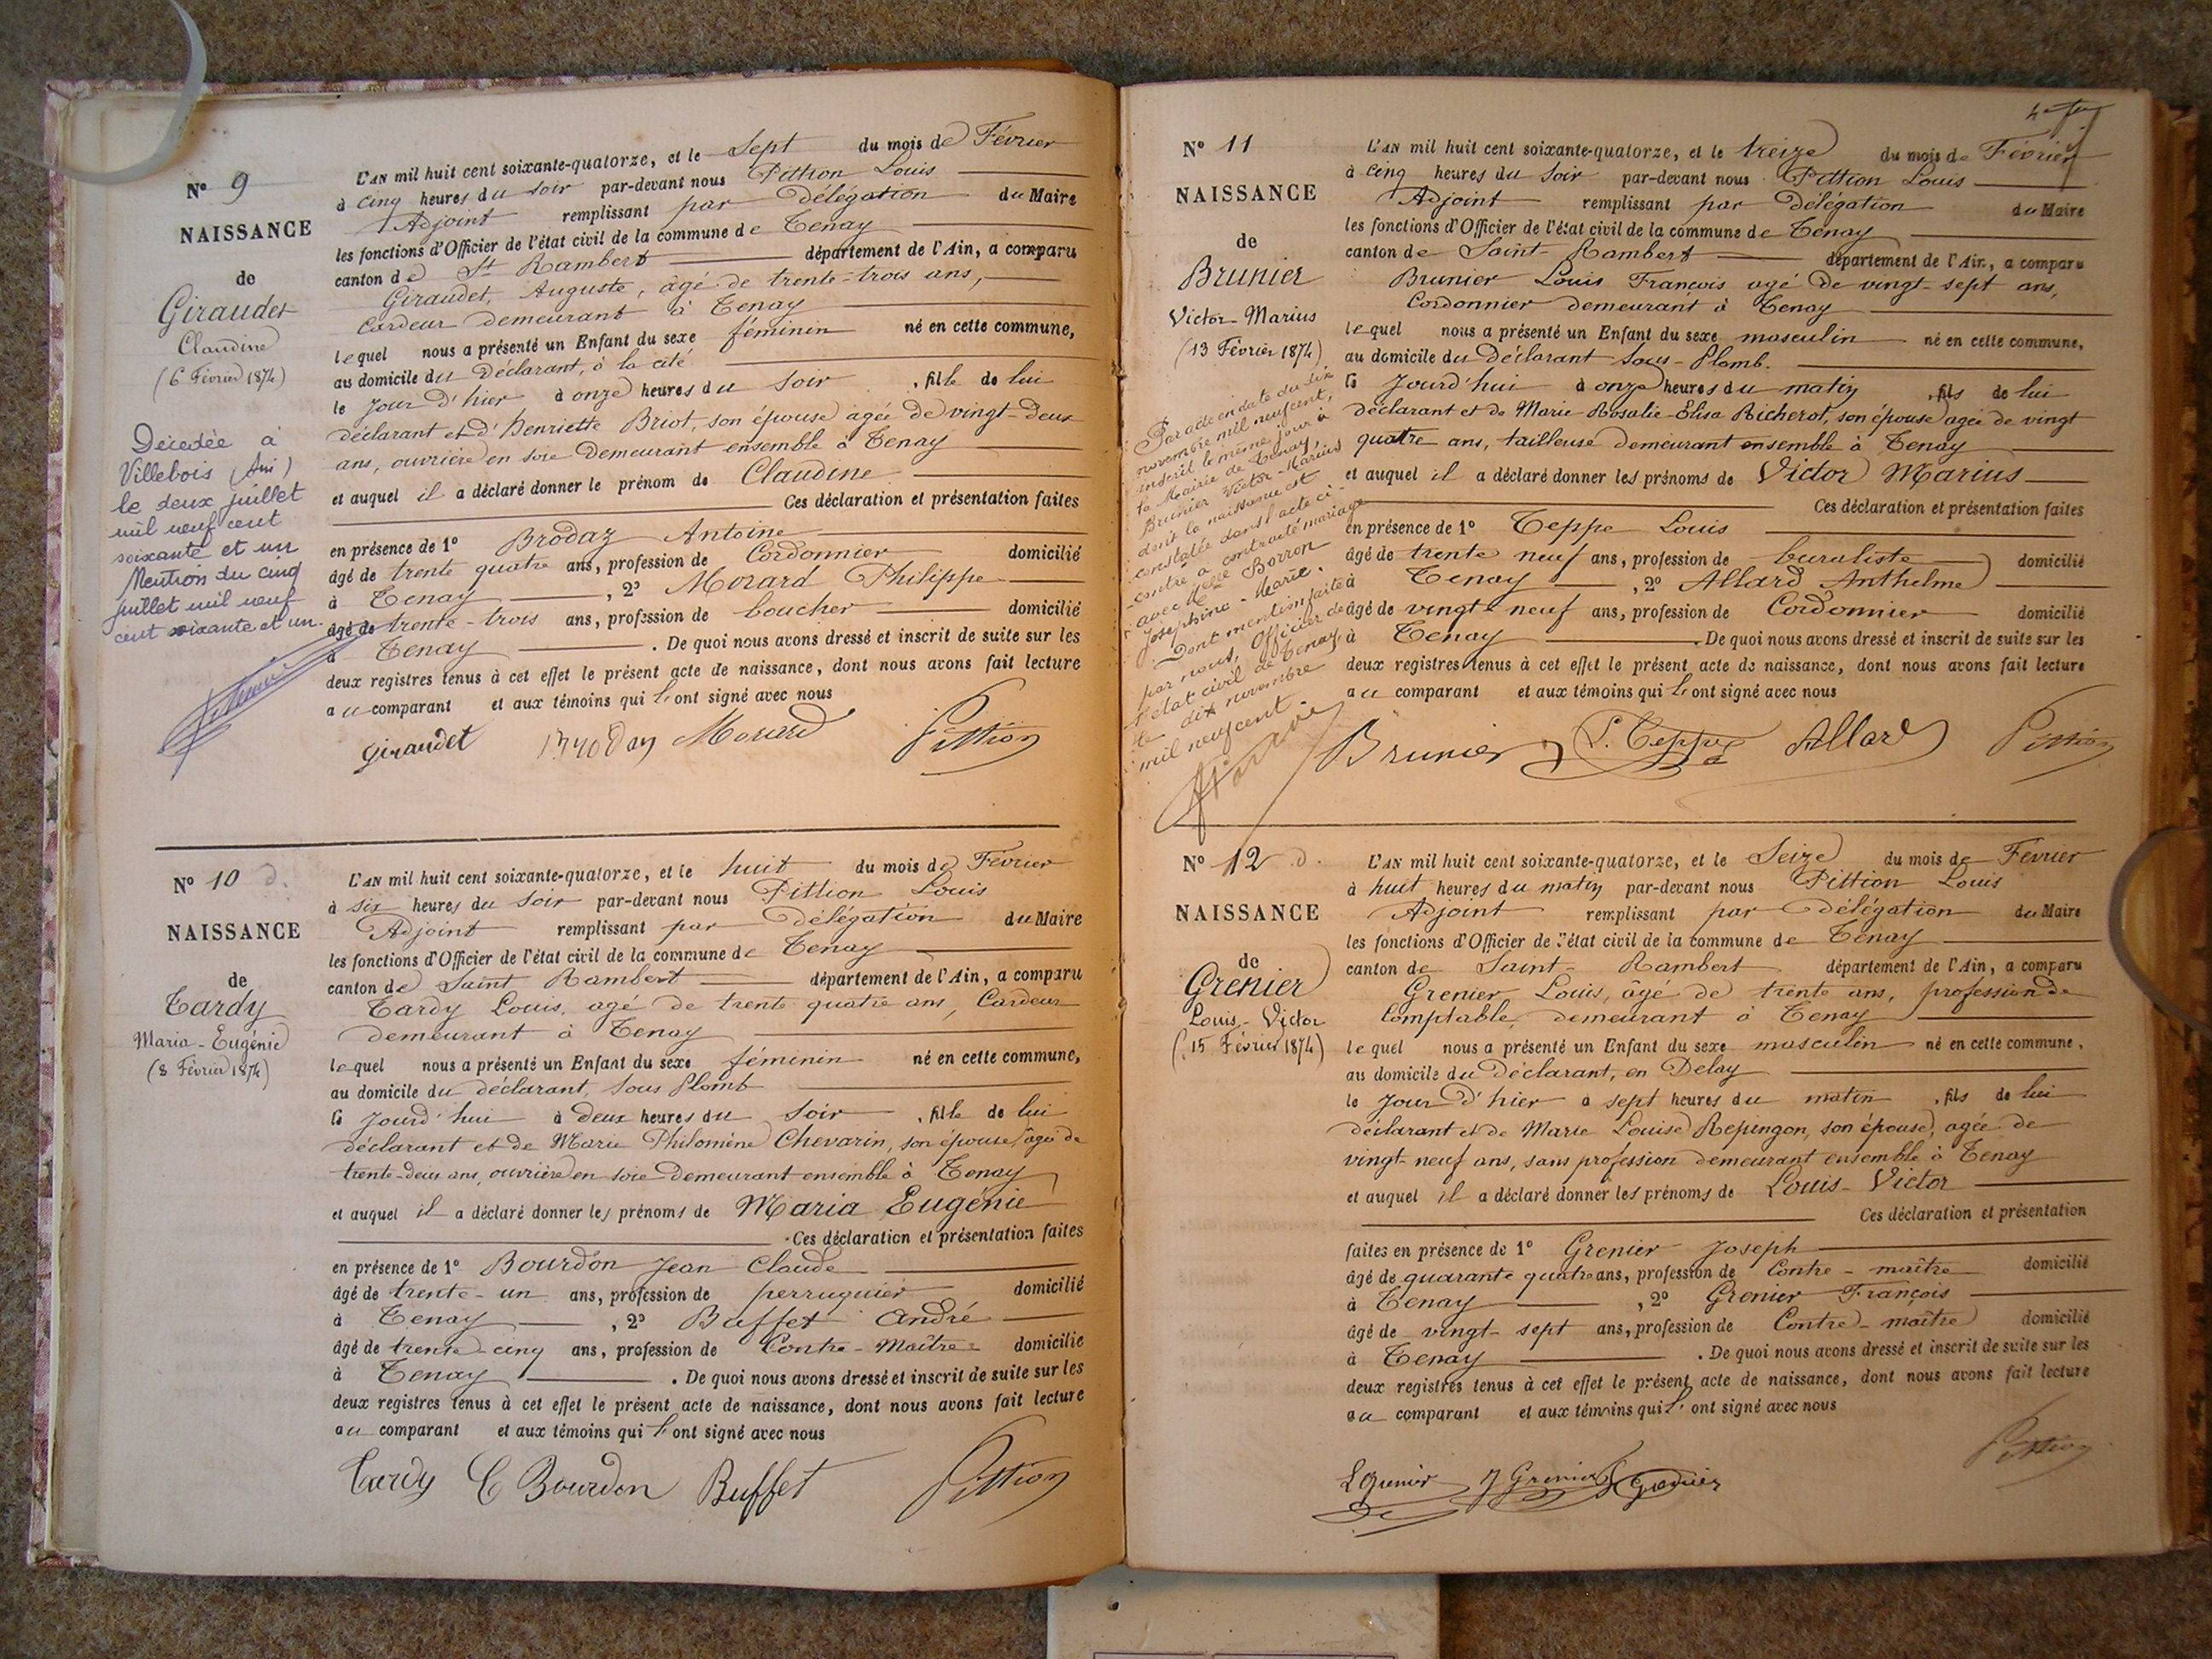 N° 9
NAISSANCE
de
Giraudet
Claudine
(6 Février 1874)
Décédée à
Villebois (Ain)
le deux juillet
mil neuf cent
soixante et un
Mention du cinq
juillet mil neuf
cent soixante et un.
L'AN mil huit cent soixante-quatorze, et le Sept du mois de Février
à cinq heures du soir par-devant nous Pittion Louis
Adjoint remplissant par délégation du Maire
les fonctions d'Officier de l'état civil de la commune de Tenay
canton de St Rambert département de l'Ain, a comparu
Giraudet, Auguste, âgé de trente-trois ans,
Cardeur demeurant à Tenay
lequel nous a présenté un Enfant du sexe féminin né en cette commune,
au domicile du Déclarant, à la cité
le jour d'hier à onze heures du soir, fille de lui
déclarant et d'Henriette Briot, son épouse âgée de vingt-deux
ans, ouvrière en soie demeurant ensemble à Tenay
et auquel il a déclaré donner le prénom de Claudine
Ces déclaration et présentation faites
en présence de 1° Brodaz Antoine
âgé de trente quatre ans, profession de Cordonnier domicilié
à Tenay, 2° Morard Philippe
âgé de trente-trois ans, profession de boucher domicilié
à Tenay. De quoi nous avons dressé et inscrit de suite sur les
deux registres tenus à cet effet le présent acte de naissance, dont nous avons fait lecture
au comparant et aux témoins qui l'ont signé avec nous
Giraudet Brodaz Morard Pittion
N° 10 d.
NAISSANCE
de
Tardy
Maria-Eugénie
(8 Février 1874)
L'AN mil huit cent soixante-quatorze, et le huit du mois de Février
à six heures du soir par-devant nous Pittion Louis
Adjoint remplissant par délégation du Maire
les fonctions d'Officier de l'état civil de la commune de Tenay
canton de Saint Rambert département de l'Ain, a comparu
Tardy Louis, agé de trente quatre ans, Cardeur
demeurant à Tenay
lequel nous a présenté un Enfant du sexe féminin né en cette commune,
au domicile du déclarant, Sous Plomb
le jourd'hui à deux heures du soir, fille de lui
déclarant et de Marie Philomène Chevarin, son épouse, âgée de
trente-deux ans, ouvrière en soie demeurant ensemble à Tenay
et auquel il a déclaré donner les prénoms de Maria Eugénie
Ces déclaration et présentation faites
en présence de 1° Bourdon Jean Claude
âgé de trente-un ans, profession de perruquier domicilié
à Tenay, 2° Buffet André
âgé de trente-cinq ans, profession de Contre-Maître domicilié
à Tenay. De quoi nous avons dressé et inscrit de suite sur les
deux registres tenus à cet effet le présent acte de naissance, dont nous avons fait lecture
au comparant et aux témoins qui l'ont signé avec nous
Tardy C Bourdon Buffet Pittion
N° 11
NAISSANCE
de
Brunier
Victor-Marius
(13 Février 1874)
Par acte en date du dix
novembre mil neuf cent,
inscrit le même jour à
la Mairie de Tenay,
Brunier Victor-Marius
dont la naissance est
constatée dans l'acte ci-
-contre a contracté mariage
avec Melle Borron
Joséphine-Marie.
Dont mention faite
par nous, Officier de
l'état civil de Tenay,
le dix novembre
mil neuf cent.
L'AN mil huit cent soixante-quatorze, et le treize du mois de Février
à cinq heures du soir par-devant nous Pittion Louis
Adjoint remplissant par délégation du Maire
les fonctions d'Officier de l'état civil de la commune de Tenay
canton de Saint-Rambert département de l'Ain, a comparu
Brunier Louis François agé de vingt-sept ans,
Cordonnier demeurant à Tenay
lequel nous a présenté un Enfant du sexe masculin né en cette commune,
au domicile du déclarant Sous-Plomb.
le jourd'hui à onze heures du matin, fils de lui
déclarant et de Marie Rosalie-Elisa Richerot, son épouse agée de vingt
quatre ans, tailleuse demeurant ensemble à Tenay
et auquel il a déclaré donner les prénoms de Victor Marius
Ces déclaration et présentation faites
en présence de 1° Teppe Louis
âgé de trente neuf ans, profession de buraliste domicilié
à Tenay, 2° Allard Anthelme
âgé de vingt-neuf ans, profession de Cordonnier domicilié
à Tenay. De quoi nous avons dressé et inscrit de suite sur les
deux registres tenus à cet effet le présent acte de naissance, dont nous avons fait lecture
au comparant et aux témoins qui l'ont signé avec nous
Brunier L. Teppe Allard Pittion
N° 12 d.
NAISSANCE
de
Grenier
Louis-Victor
(15 Février 1874)
L'AN mil huit cent soixante-quatorze, et le Seize du mois de Février
à huit heures du matin par-devant nous Pittion Louis
Adjoint remplissant par délégation du Maire
les fonctions d'Officier de l'état civil de la commune de Tenay
canton de Saint-Rambert département de l'Ain, a comparu
Grenier Louis, âgé de trente ans, profession de
Comptable, demeurant à Tenay
lequel nous a présenté un Enfant du sexe masculin né en cette commune,
au domicile du Déclarant, en Delay
le jour d'hier à sept heures du matin, fils de lui
déclarant et de Marie Louise Repingon, son épouse, agée de
vingt-neuf ans, sans profession demeurant ensemble à Tenay
et auquel il a déclaré donner les prénoms de Louis-Victor
Ces déclaration et présentation
faites en présence de 1° Grenier Joseph
âgé de quarante quatre ans, profession de Contre-maître domicilié
à Tenay, 2° Grenier François
âgé de vingt-sept ans, profession de Contre-maître domicilié
à Tenay. De quoi nous avons dressé et inscrit de suite sur les
deux registres tenus à cet effet le présent acte de naissance, dont nous avons fait lecture
au comparant et aux témoins qui l'ont signé avec nous
L Grenier J Grenier F Grenier Pittion